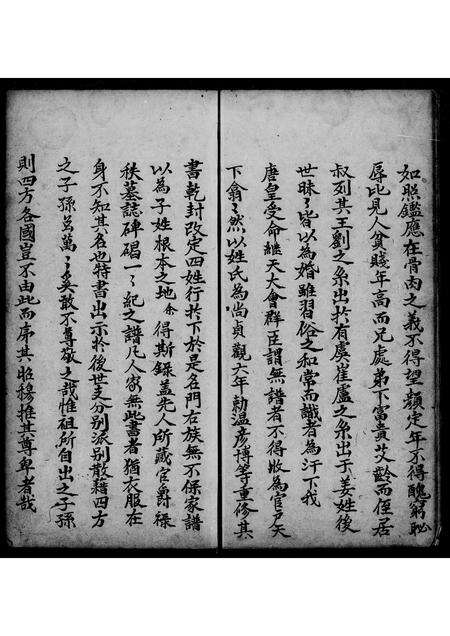 如照鑑應在骨肉之義不得望顏定年不得醜窮恥
辱比見人貧賤年高而兄處弟下富貴艾齡而侄居
叔列其王劉之系出於有虞崔盧之系出于姜姓後
世昧〻皆以為婚雖習俗之和常而識者為汗下我
唐皇受命继天大會群臣謂無譜者不得收為官尹天
下翕〻然以姓氏為尚貞觀六年勅温彦博等重修其
書乾封改定四姓行於下於是名門右族無不保家譜
以為子姓根本之地余得斯錄盖先人所藏官爵祿
秩墓誌碑碣一〻紀之譜凡人家無此書者猶衣服在
身不知其名也特書出示於後世支分别派别散籍四方
之子孫吕萬〻奚敢不尊敬之哉惟祖所自出之子孫
則四方各國豈不由此而序其昭穆推其尊卑者哉